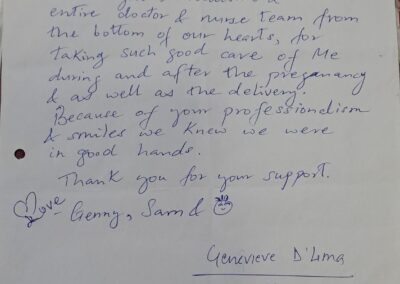 entire doctor & nurse team from
the bottom of our hearts, for
taking such good care of Me
during and after the pregnancy
& as well as the delivery.
Because of your professionalism
& smiles we knew we were
in good hands.
Thank you for your support.
Love - Genny, Sam &
Genevieve D'Lima